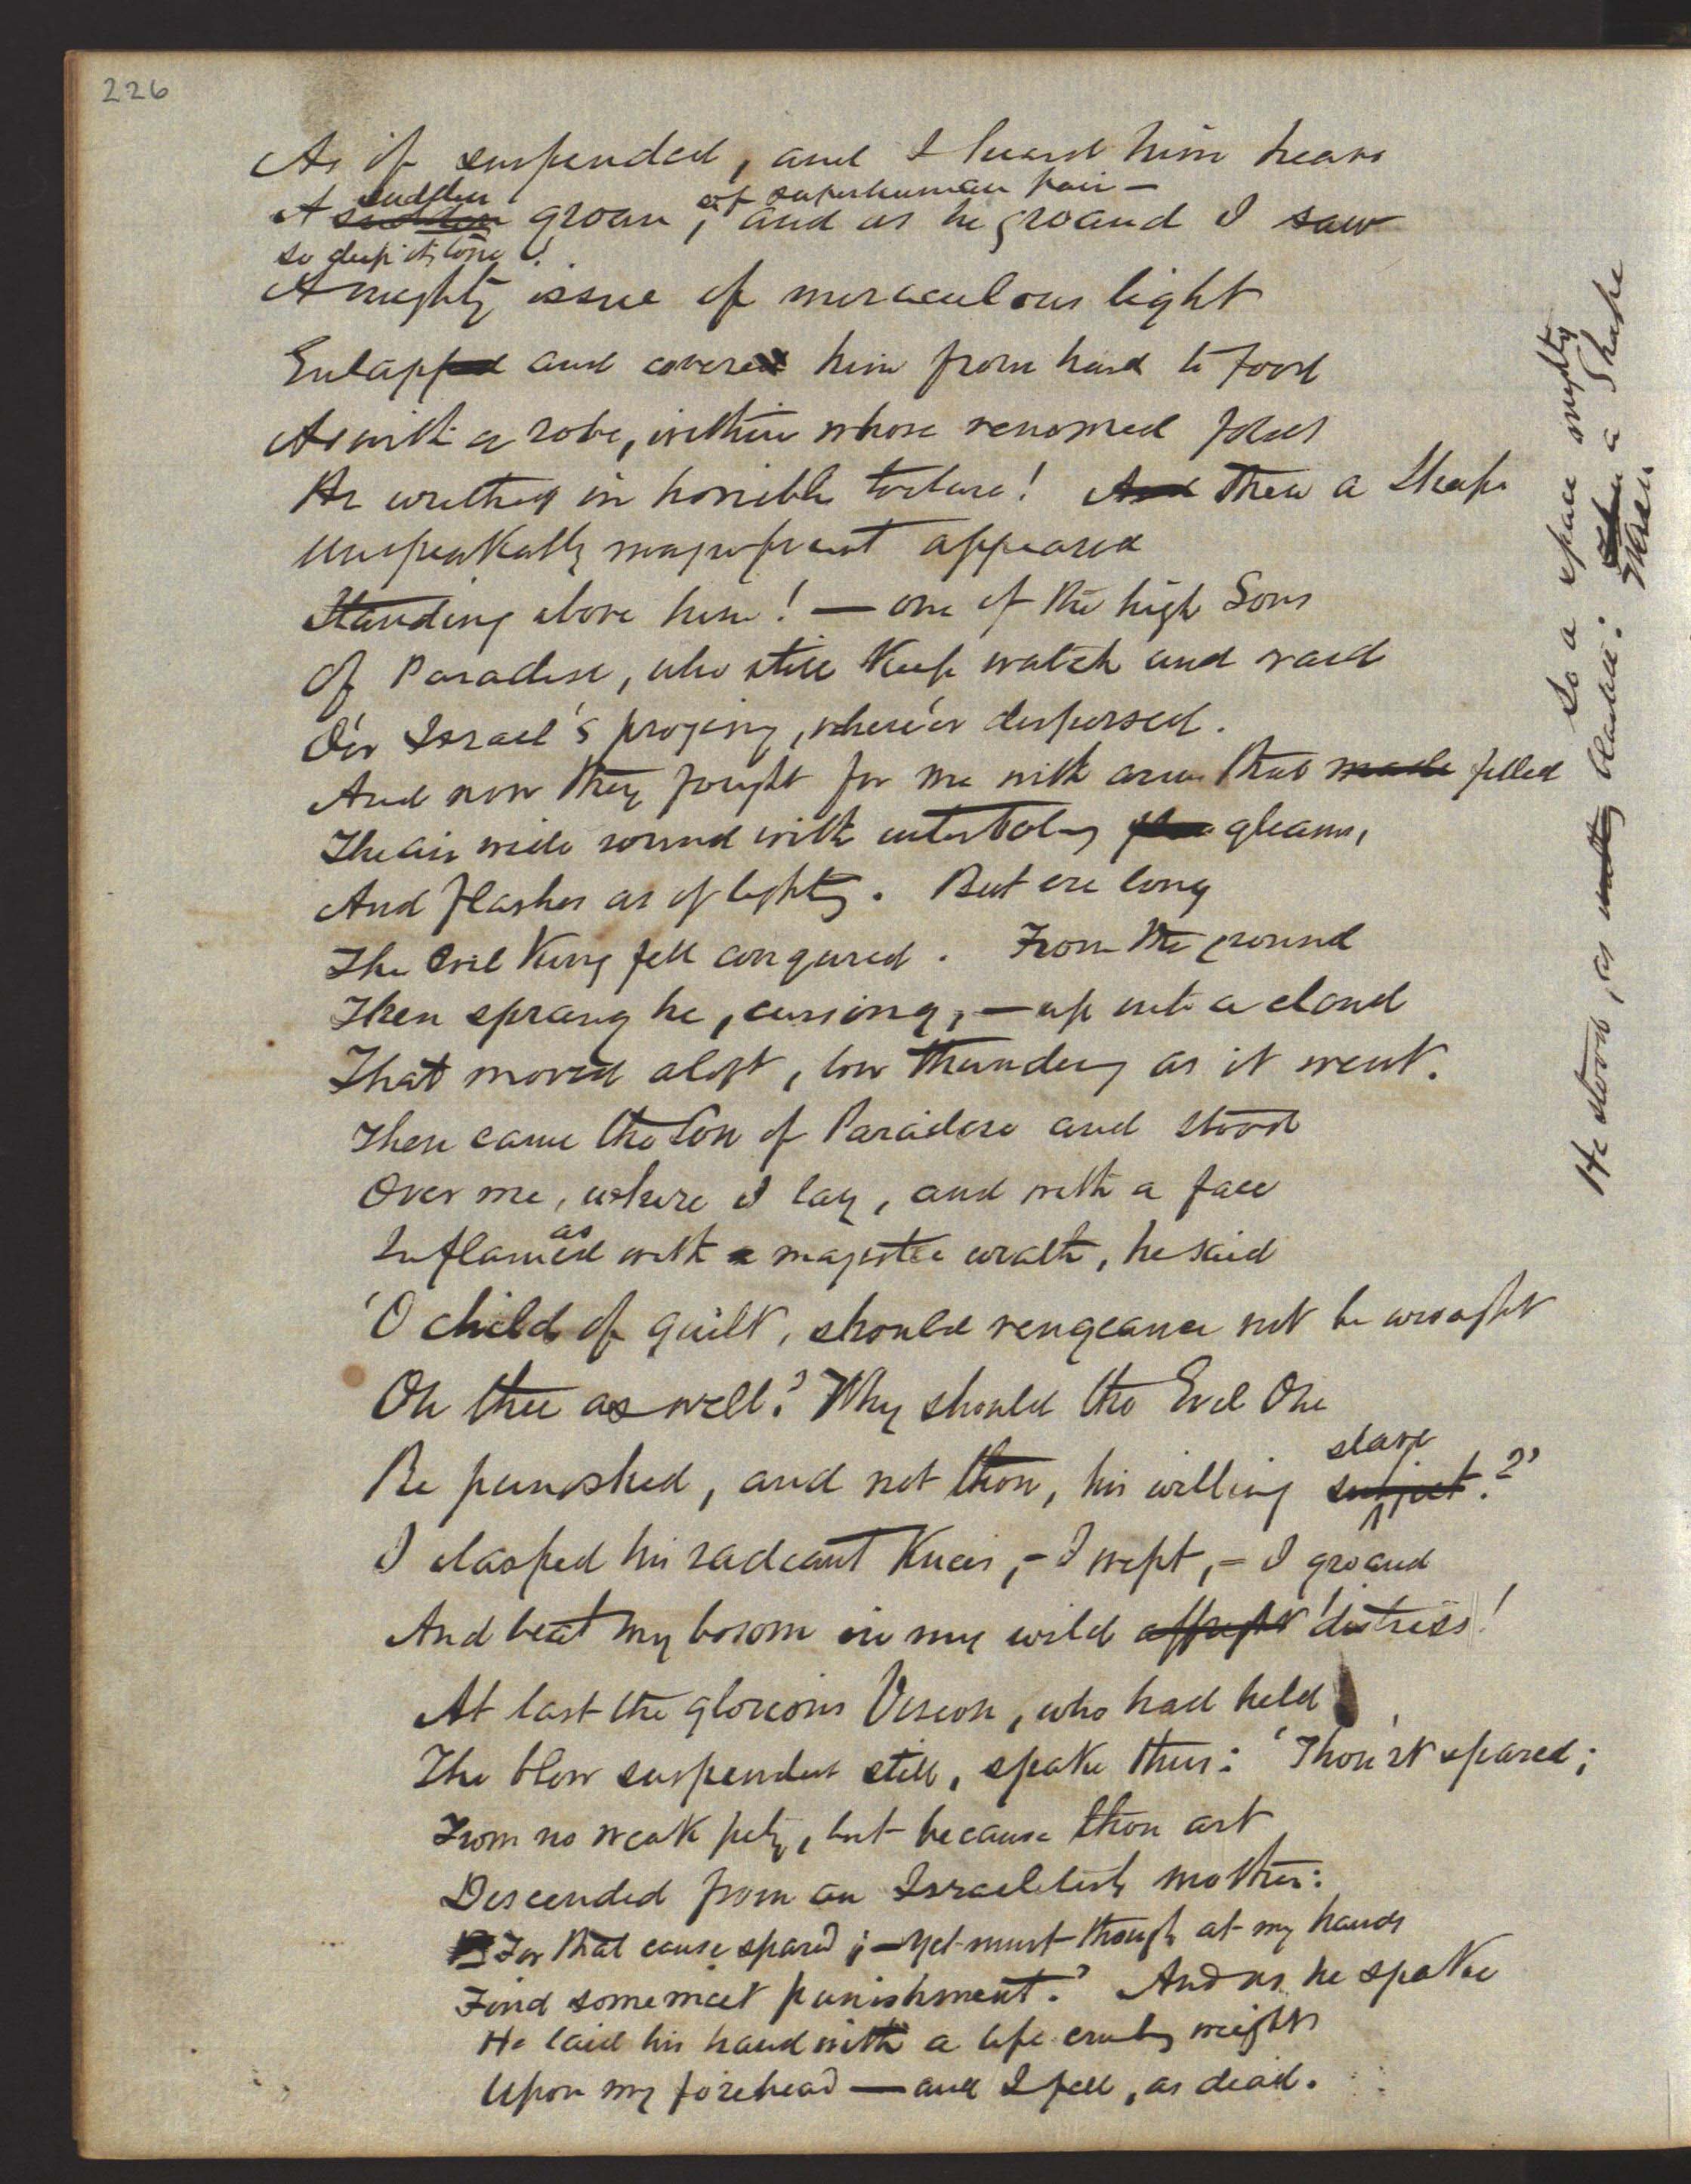 226
As if suspended, and I heard him heave
sudden of superhuman pain —
A sudden groan, and as he groand I saw
so deep its tone!
A mighty issue of miraculous light
Enlapped and covered him from head to foot
As with a robe, within whose venomed folds
He writhed in horrible torture! And Then a Shape
Unspeakably magnificent appeared
Standing above him! — one of the high Sons
Of Paradise, who still Keep watch and ward
O'er Israel's progeny, where'er dispersed.
And now they fought for me with arms that made filled
The air wide round with interbolting gleams,
And flashes as of lightng. But ere long
The Evil King fell conquered. From the ground
Then sprang he, cursing, — up into a cloud
That moved aloft, low thunderng as it went.
Then came the Son of Paradise and stood
Over me, where I lay, and with a face
as
Inflamed with a majestic wrath, he said
'O child of guilt, should vengeance not be wrought
On thee as well? Why should the Evil One
slave
Be punished, and not thou, his willing subject?'
I clasped his radiant Knees, – I wept, – I groand
And beat my bosom in my wild affright distress!
At last the glorious Vision, who had held
The blow suspended still, spake thus: 'Thou'rt spared;
From no weak pity, but because thou art
Descended from an Israelitish mother:
For that cause spared; — yet must though at my hands
Find some meet punishment.' And as he spake
He laid his hand with a life-crushing weight
Upon my forehead — and I fell, as dead.
So a space mighty
He stood, as mutely blasted: Then a Shape
Then